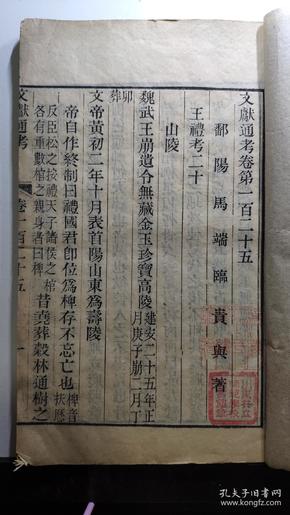 文獻通考卷第一百二十五
鄱陽馬端臨貴與著
王禮考二十
山陵
魏武王崩遺令無藏金玉珍寶高陵建安二十五年正
月庚子崩二月丁
卯
葬
文帝黃初二年十月表首陽山東為壽陵
帝自作終制曰禮國君即位為椑存不忘亡也椑音
扶歷
反臣松之按禮天子諸侯之棺
各有重數棺之親身者曰椑昔堯葬穀林通樹之
文獻通考
卷一百二十五
一
孔夫子旧书网